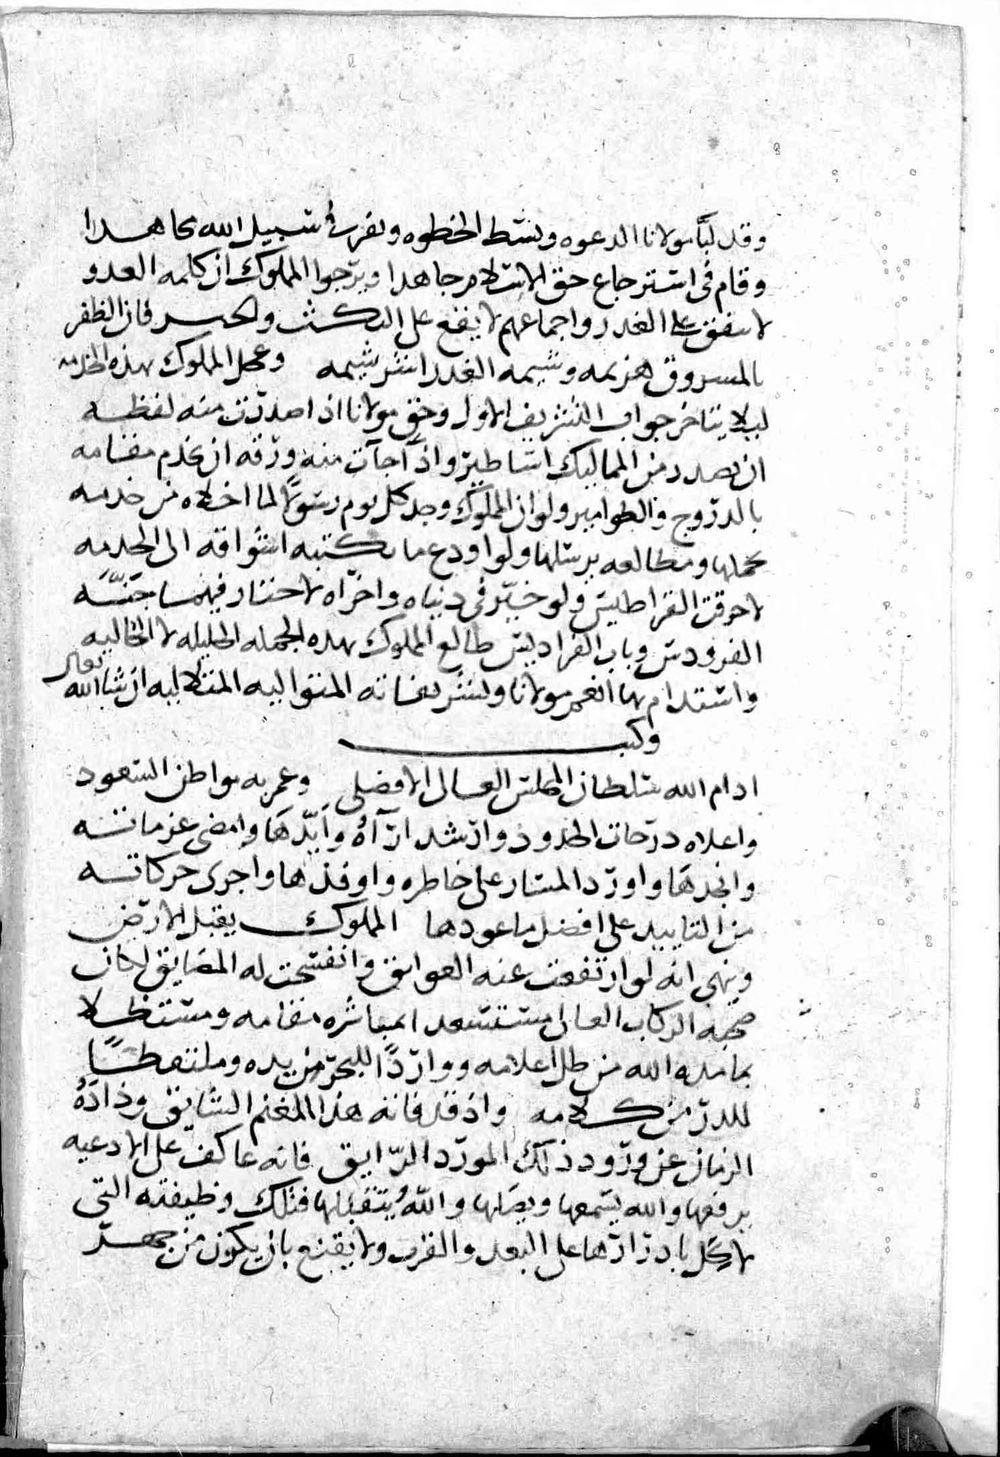 وقد لبا مولانا الدعوه وبسط الخطوه ونفر في سبيل الله مجاهدا
وقام في استرجاع حق الاسلام جاهدا ويرجوا المملوك ان كلمه العدو
لا تتفق على الغدر واجماعهم لا يقع على النكث والختر فان الظفر
بالمسروق هزيمه وشيمه الغدر اشر شيمه وعجل المملوك بهذه الخدمه
ليلا يتاخر جواب التشريف الاول وحق مولانا اذا صدرت منه لفظه
ان يصدر من المماليك اساطير واذا جات منه ورقه ان يخدم مقامه
بالدروج والطوامير ولو ان المملوك وجد كل يوم رسولا لما اخلاه من خدمه
يحملها ومطالعه يرسلها ولو اودع ما يكتبه اشواقه الى الخدمه
لاحرقت القراطيس ولو خير في دنياه واخراه لاختار فيهما جنته
الفردوس وباب الفراديس طالع المملوك بهذه الجمله الجليله لا الخاليه
واستدام بها انعم مولانا وتشريفاته المتواليه المتلاليه ان شا الله تعالى
وكتب
ادام الله سلطان المجلس العالي الافضلي وعمر به مواطن السعود
واعلاه درجات الجدود وارشد اراه وايدها وامضى عزماته
وانجدها واورد المسار على خاطره واوفدها واجرى حركاته
من التاييد على افضل ما عودها المملوك يقبل الارض
وينهي انه لو ارتفعت عنه العوايق وانفسحت له المضايق لكان
صحبه الركاب العالي مستسعدا بمباشره مقامه ومستظلا
بما مده الله من ظل اعلامه وواردا للبحر من يده وملتقطا
للدر من كلامه واذ قد فاته هذا المغنم السايق وذاده
الزمان عن ورود ذلك المورد الرايق فانه عاكف على الادعيه
يرفعها والله يسمعها ويصلها والله يتقبلها فتلك وظيفته التي
لا يخل بادرارها على البعد والقرب ولا يقنع بان يكون من جهد